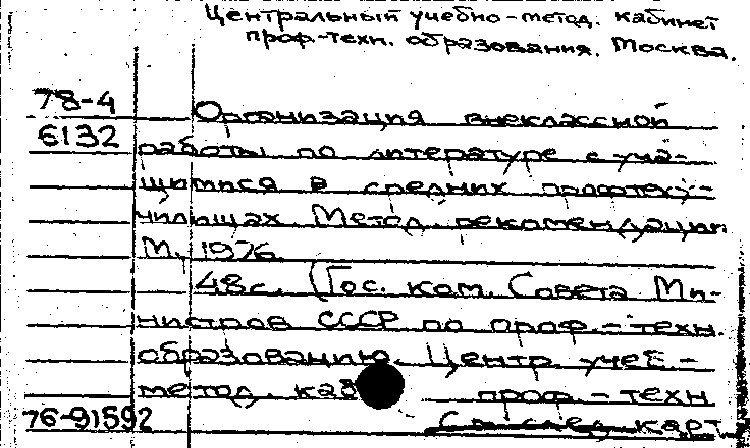 Центральный учебно-метод. кабинет
проф-техн. образования. Москва.
78-4
6132
Организация внеклассной
работы по литературе с уча-
щимися в средних профтеху-
чилищах. Метод. рекомендации.
М., 1976.
48с. (Гос. ком. Совета Ми-
нистров СССР по проф.-техн.
образованию. Центр. учеб.-
метод. каб проф.-техн
76-91592
См след карт